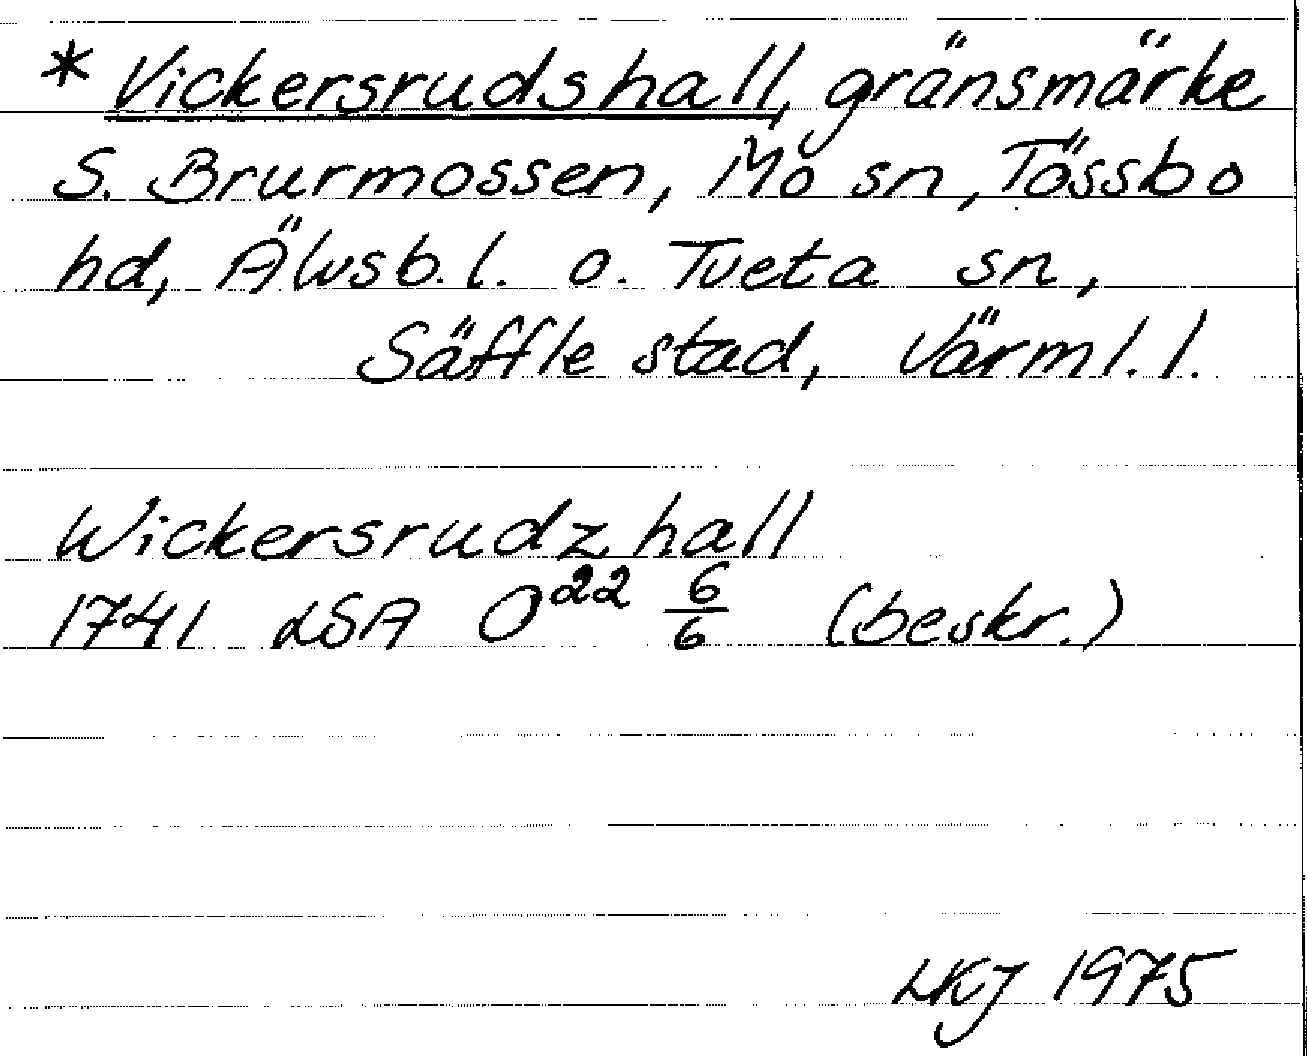 * Vickersrudshall, gränsmärke
S. Brurmossen, Mo sn, Tössbo
hd, Älvsb. l. o. Tveta sn,
Säffle stad, Värml. l.
Wickersrudzhall
1741 LSA O²² 6/6 (beskr.)
LKJ 1975